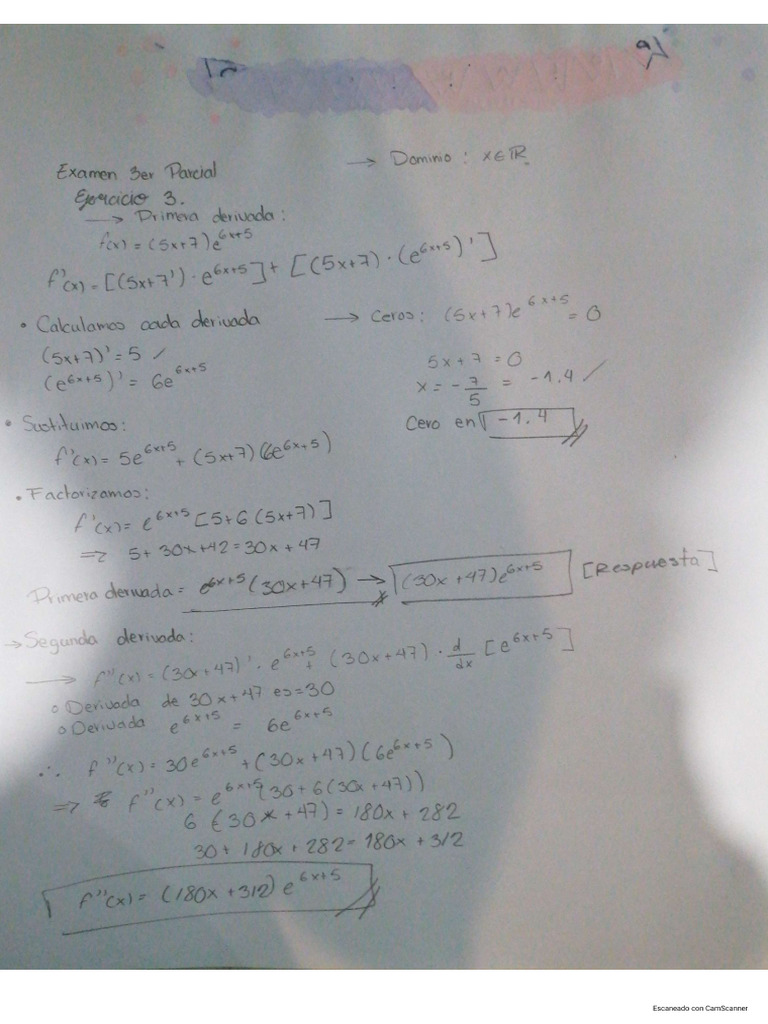 Examen 3er Parcial
Ejercicio 3.
→ Dominio: x∈ℝ.
→ Primera derivada:
f(x) = (5x+7)e^6x+5
f'(x) = [(5x+7') · e^6x+5] + [(5x+7) · (e^6x+5)']
• Calculamos cada derivada
(5x+7)' = 5 ✓
(e^6x+5)' = 6e^6x+5
→ Ceros: (5x+7)e^6x+5 = 0
5x+7 = 0
x = -7/5 = -1.4 ✓
Cero en -1.4
• Sustituimos:
f'(x) = 5e^6x+5 + (5x+7)(6e^6x+5)
• Factorizamos:
f'(x) = e^6x+5 [5+6(5x+7)]
⇒ 5+30x+42 = 30x+47
Primera derivada = e^6x+5 (30x+47) → (30x+47)e^6x+5 [Respuesta]
→ Segunda derivada:
→ f''(x) = (30x+47)' · e^6x+5 + (30x+47) · d/dx [e^6x+5]
○ Derivada de 30x+47 es = 30
○ Derivada e^6x+5 = 6e^6x+5
∴ f''(x) = 30e^6x+5 + (30x+47)(6e^6x+5)
⇒ f''(x) = e^6x+5 (30+6(30x+47))
6 (30x+47) = 180x+282
30+180x+282 = 180x+312
f''(x) = (180x+312)e^6x+5
Escaneado con CamScanner